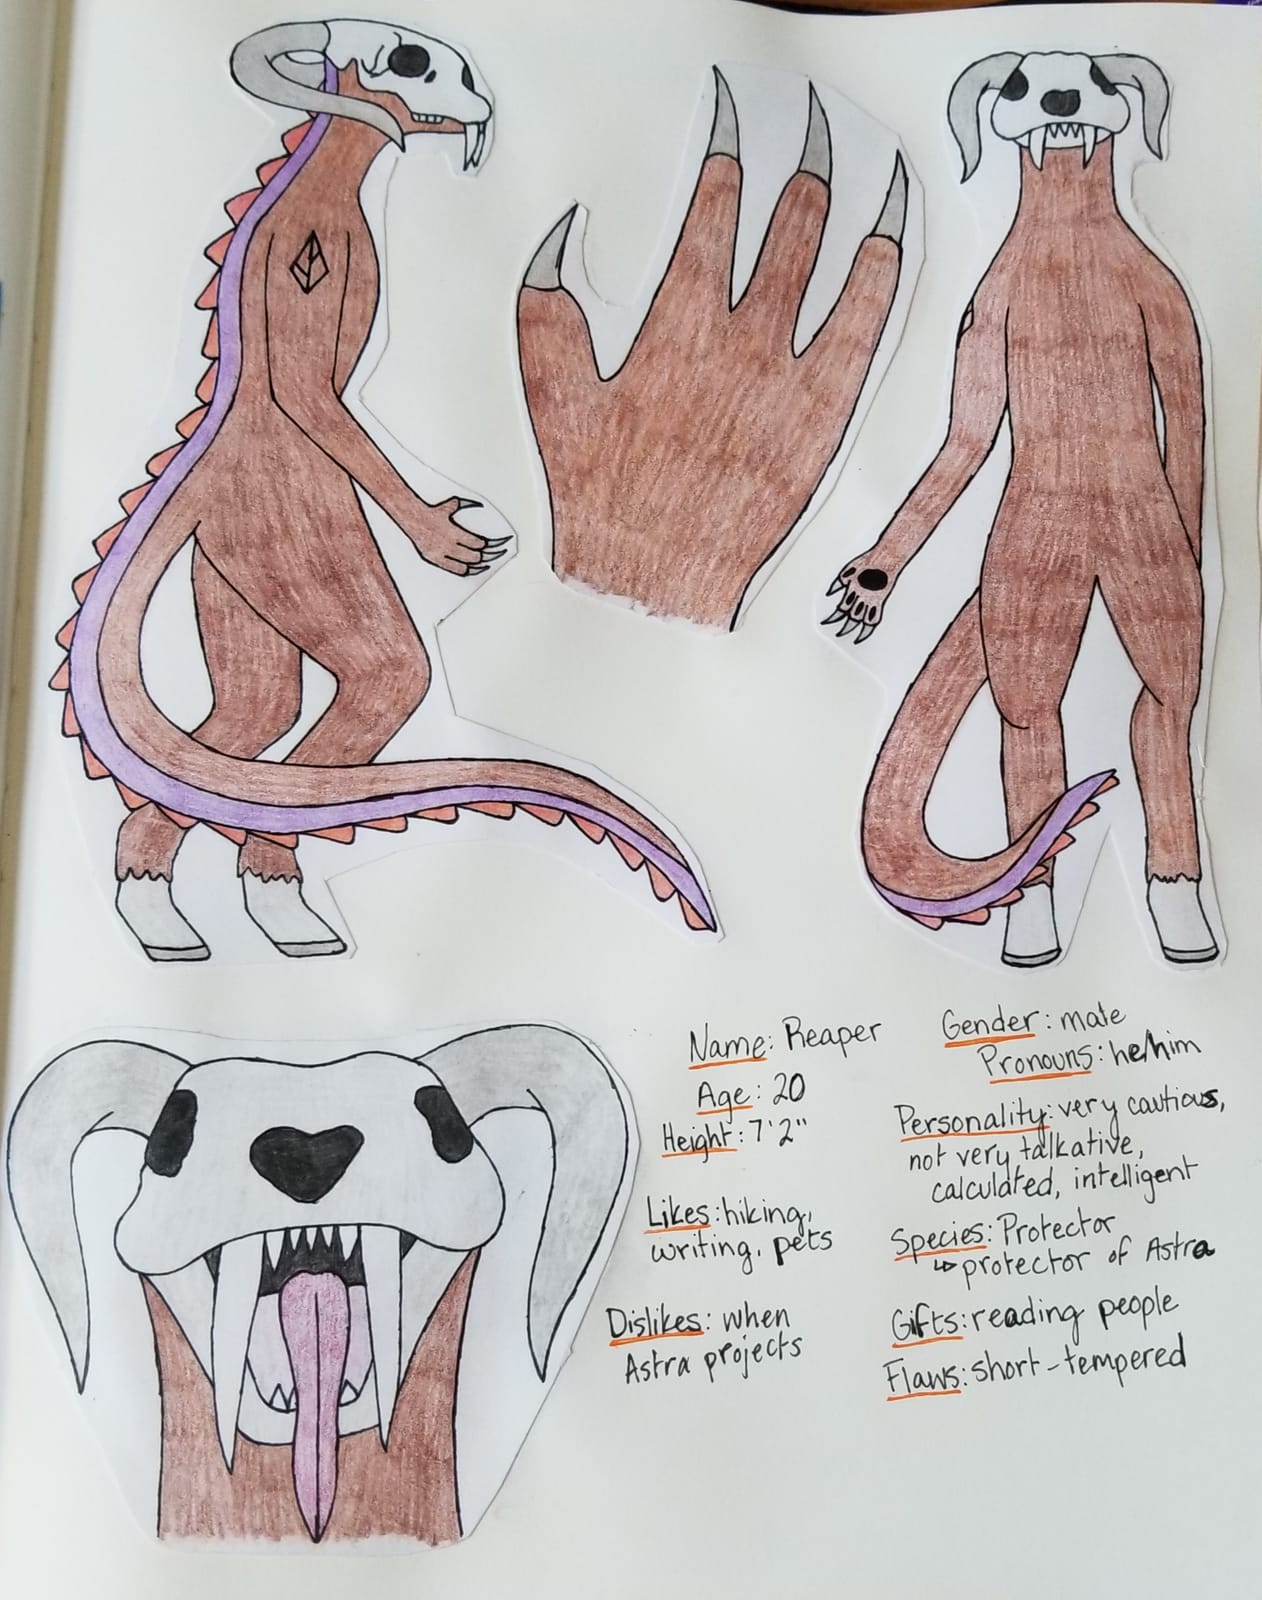 Name: Reaper
Age: 20
Height: 7'2"
Likes: hiking,
writing, pets
Dislikes: when
Astra projects
Gender: male
Pronouns: he/him
Personality: very cautious,
not very talkative,
calculated, intelligent
Species: Protector
↳ protector of Astra
Gifts: reading people
Flaws: short-tempered